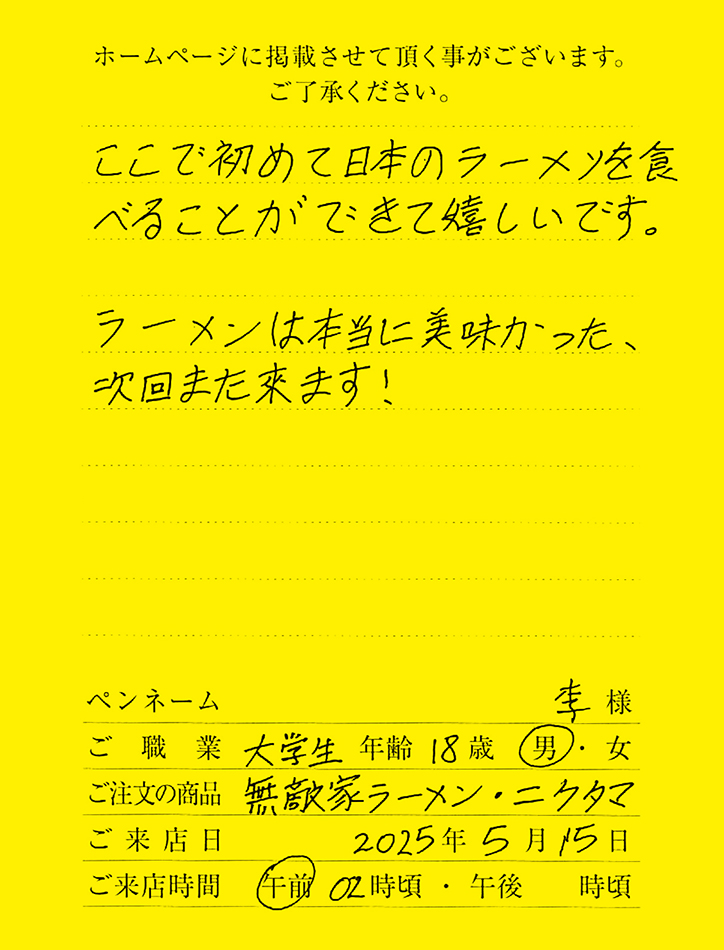 ホームページに掲載させて頂く事がございます。
ご了承ください。
ここで初めて日本のラーメンを食
べることができて嬉しいです。
ラーメンは本当に美味かった、
次回また来ます!
ペンネーム 李 様
ご職業 大学生 年齢 18 歳 男・女
ご注文の商品 無敵家ラーメン・ニクタマ
ご来店日 2025年 5 月 15 日
ご来店時間 午前 02 時頃 ・ 午後 時頃